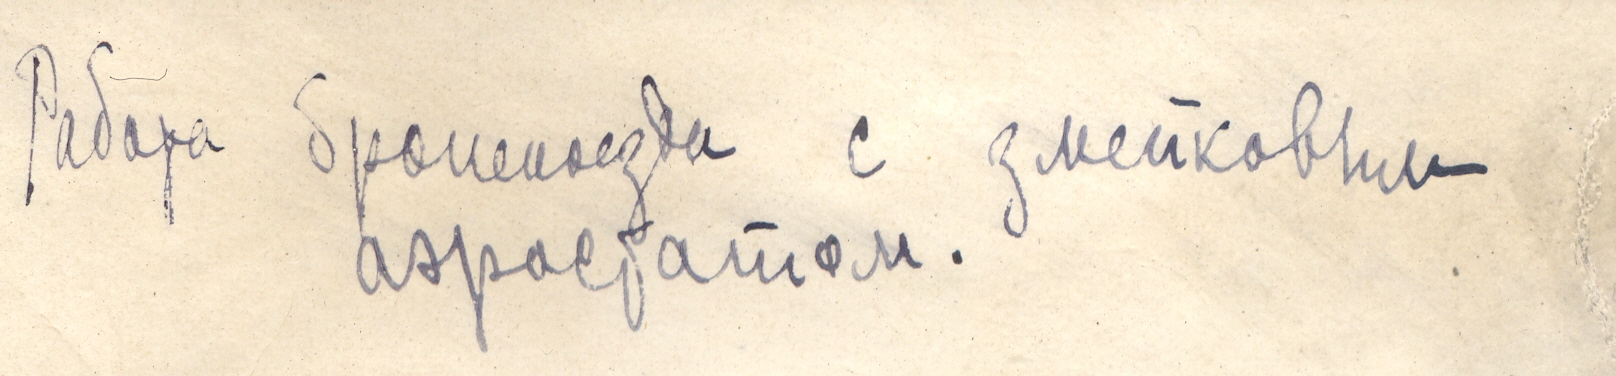 Работа бронепоезда с змейковым
аэростатом.